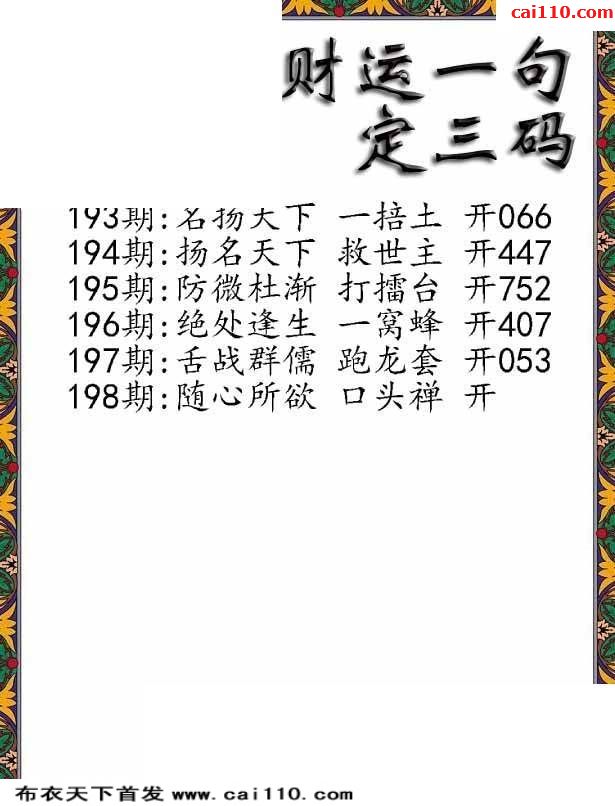 cai110.com
财运一句
定三码
193期:名扬天下 一掊土 开066
194期:扬名天下 救世主 开447
195期:防微杜渐 打擂台 开752
196期:绝处逢生 一窝蜂 开407
197期:舌战群儒 跑龙套 开053
198期:随心所欲 口头禅 开
布衣天下首发 www.cai110.com